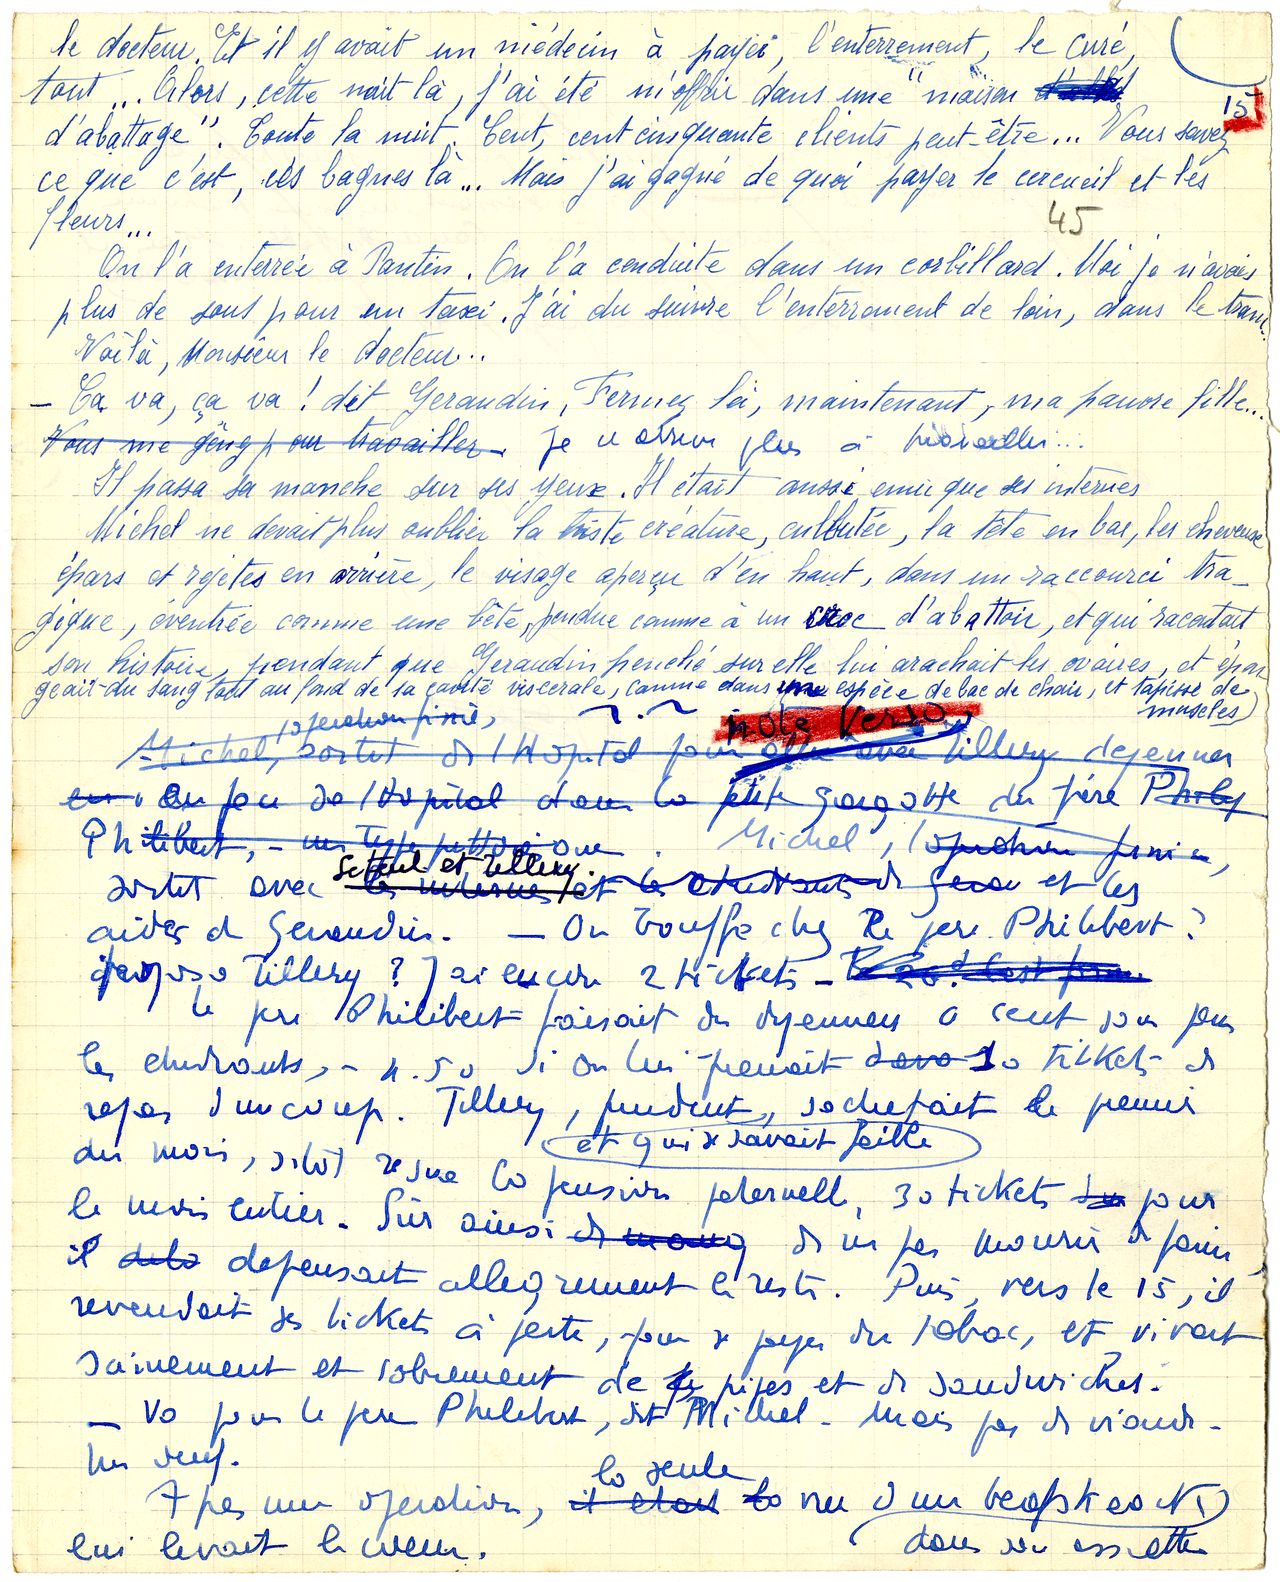 le docteur. Et il y avait un médecin à payer, l'enterrement, le curé,
tout... Alors, cette nuit là, j'ai été m'offrir dans une "maison
15
d'abattage". Toute la nuit. Cent, cent cinquante clients peut-être... Vous savez
ce que c'est, ces bagnes là... Mais j'ai gagné de quoi payer le cercueil et les
fleurs...
45
On l'a enterrée à Pantin. On l'a conduite dans un corbillard. Moi je n'avais
plus de sous pour un taxi. J'ai du suivre l'enterrement de loin, dans le tram.
Voilà, Monsieur le docteur...
- Ca va, ça va ! dit Geraudin, Fermez là, maintenant, ma pauvre fille...
Vous me gênez pour travailler. je n'arrive plus à travailler...
Il passa sa manche sur ses yeux. Il était aussi emu que ses internes
Michel ne devait plus oublier la triste créature, culbutée, la tête en bas, les cheveux
épars et rejetés en arrière, le visage aperçu d'en haut, dans un raccourci tra-
gique, éventrée comme une bête, pendue comme à un croc d'abattoir, et qui racontait
son histoire, pendant que Geraudin penché sur elle lui arachait les ovaires, et épon
geait du sang tout au fond de la cavité viscerale, comme dans une espèce de bac de chair, et tapissé de
muscles)
operation finie,
note verso
Michel, sortit de l'Hopital pour aller avec Tillery dejeuner
en face de l'Hôpital dans la petite gargotte du père Phily
Philibert, - un type Michel, l'operation finie,
Seteul et Tillery.
sortit avec les internes et les etudiants de Gera et les
aides de Geraudin. - On bouffe chez le pere Philibert ?
proposa Tillery ? J'ai encore 2 tickets -
Le pere Philibert faisait des dejeuners a cent sous pour
les etudiants, - 4.50 si on lui prenait 30 tickets de
repas d'un coup. Tillery, prudent, s'achetait le premier
et qui se savait faible
du mois, sitôt reçue la pension paternelle, 30 tickets pour
le mois entier. Sûr ainsi de ne pas mourir de faim,
il depensait allegrement le reste. Puis, vers le 15, il
revendait ses tickets à perte, pour se payer du tabac, et vivait
sainement et sobrement de pipes et de sandwiches.
- Va pour le pere Philibert, dit Michel - Mais pas de viande -
Un oeuf.
la seule
Apres une operation, il etait la vue d'un beafsteack
dans son assiette
lui levait le coeur.